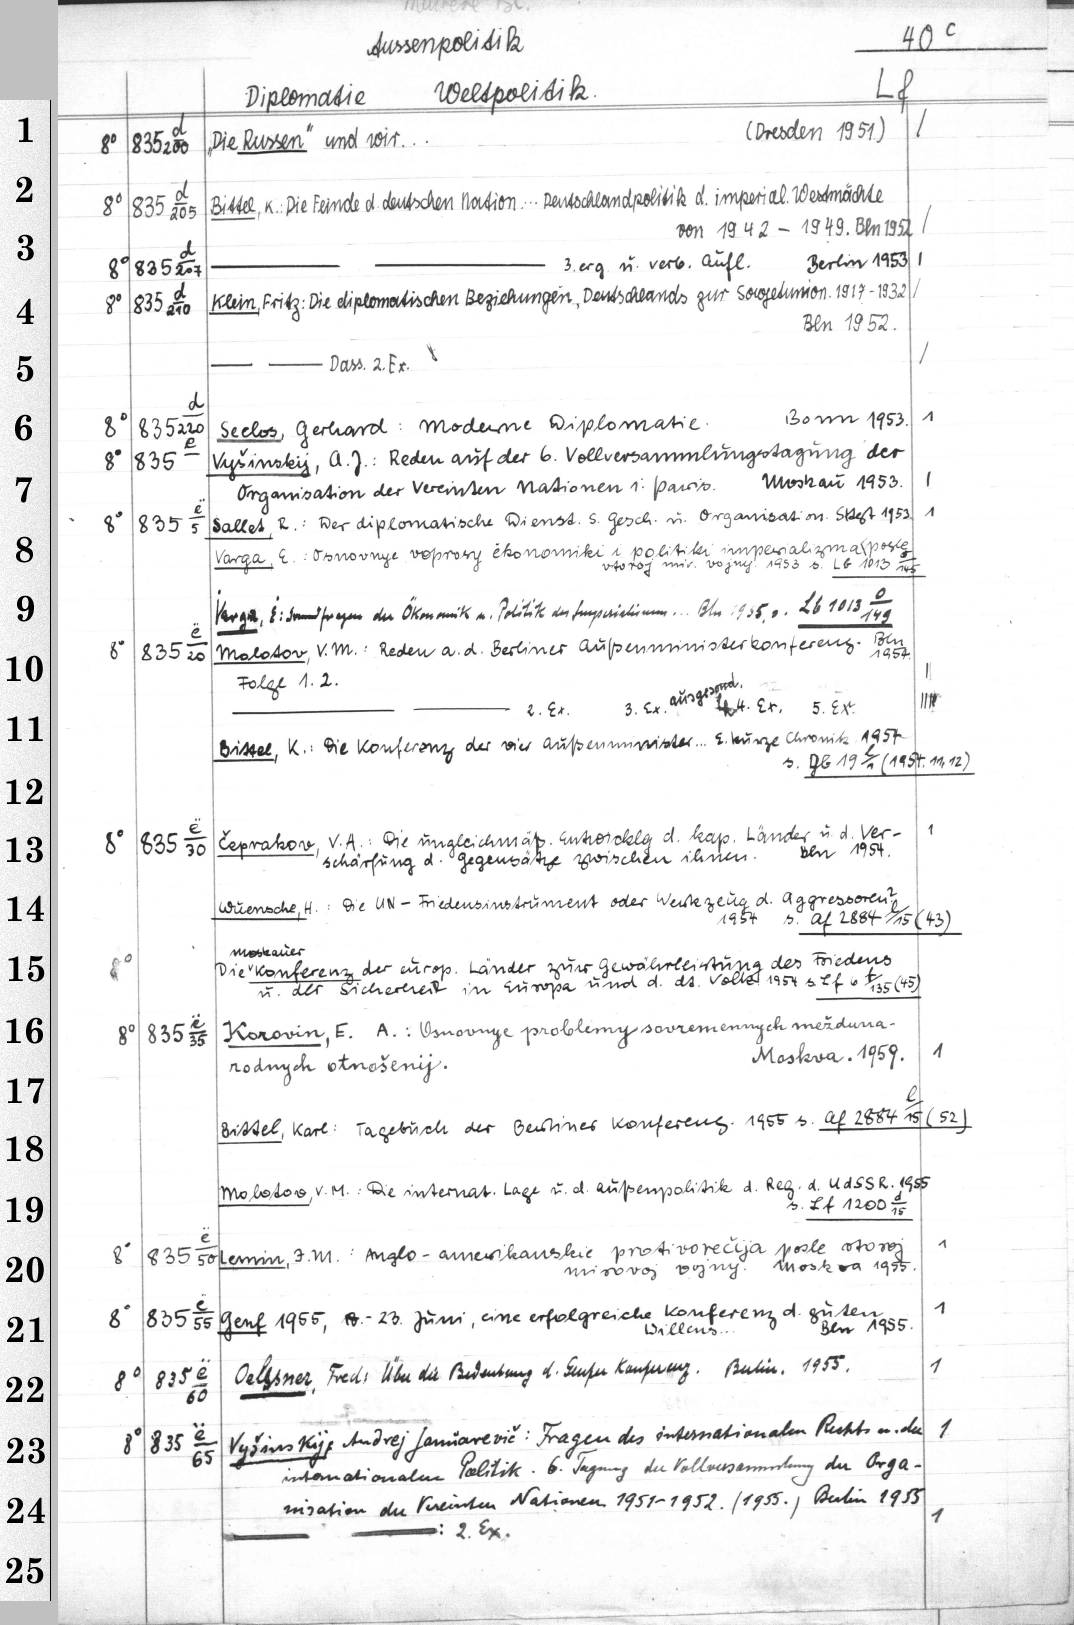 Aussenpolitik 40 c
Diplomatie Weltpolitik. Lf
1 8° 835 d/200 „Die Russen“ und wir... (Dresden 1951) /
2 8° 835 d/205 Bittel, K.: Die Feinde d. deutschen Nation... Deutschlandpolitik d. imperial. Westmächte
von 1942 - 1949. Bln 1952 /
3 8° 835 d/207 —— —— 3. erg. u. verb. Aufl. Berlin 1953 1
4 8° 835 d/210 Klein, Fritz: Die diplomatischen Beziehungen Deutschlands zur Sowjetunion. 1917-1932 /
Bln 1952.
5 —— —— Dass. 2. Ex. /
6 8° 835 d/220 Seelos, Gerhard: Moderne Diplomatie. Bonn 1953. 1
8° 835 e/– Vyšinskij, A. J.: Reden auf der 6. Vollversammlungstagung der
7 Organisation der Vereinten Nationen i. Paris. Moskau 1953. 1
8° 835 ë/5 Sallet, R.: Der diplomatische Dienst. S. Gesch. u. Organisation. Sttgt 1953 1
8 Varga, E.: Osnovnye voprosy ėkonomiki i politiki imperializma (posle
vtoroj mir. vojny. 1953 s. Lb 1013 o/145
9 Varga, E.: Grundfragen der Ökonomik u. Politik des Imperialismus... Bln 1955, s. Lb 1013 o/149
8° 835 ë/20 Molotov, V. M.: Reden a. d. Berliner Außenministerkonferenz. Bln
1954.
10 Folge 1. 2. 11
—— —— 2. Ex. 3. Ex. ausgesond. 4. Ex. 5. Ex.
11 Bittel, K.: Die Konferenz der vier Außenminister... E. kurze Chronik 1954
s. Zb 19 (1954. 11, 12)
12
13 8° 835 ë/30 Čeprakov, V. A.: Die ungleichmäß. Entwicklg d. kap. Länder u. d. Ver- 1
schärfung d. Gegensätze zwischen ihnen. Bln 1954.
14 Wuensche, H.: Die UN - Friedensinstrument oder Werkzeug d. Aggressoren?
1954 s. Af 2884 l/15 (43)
moskauer
15 8° Die Konferenz der europ. Länder zur Gewährleistung des Friedens
u. der Sicherheit in Europa und d. dt. Volk 1954 s. Lf 6 t/135 (45)
16 8° 835 ë/35 Korovin, E. A.: Osnovnye problemy sovremennych mežduna-
rodnych otnošenij. Moskva. 1959. 1
17
Bittel, Karl: Tagebuch der Berliner Konferenz. 1955 s. Af 2884 l/15 (52)
18
19 Molotov, V. M.: Die internat. Lage u. d. Außenpolitik d. Reg. d. UdSSR. 1955
s. Lf 1200 d/15
20 8° 835 ë/50 Lemin, I. M.: Anglo-amerikanskie protivorečija posle vtoroj 1
mirovoj vojny. Moskva 1955.
21 8° 835 ë/55 Genf 1955, 18.-23. Juni, eine erfolgreiche Konferenz d. guten 1
Willens... Bln 1955.
22 8° 835 ë/60 Oelssner, Fred: Über die Bedeutung d. Genfer Konferenz. Berlin. 1955. 1
23 8° 835 ë/65 Vyšinskij, Andrej Januarevič: Fragen des internationalen Rechts u. der 1
internationalen Politik. 6. Tagung der Vollversammlung der Orga-
24 nisation der Vereinten Nationen 1951-1952. (1955.) Berlin 1955
—— ——: 2. Ex. 1
25